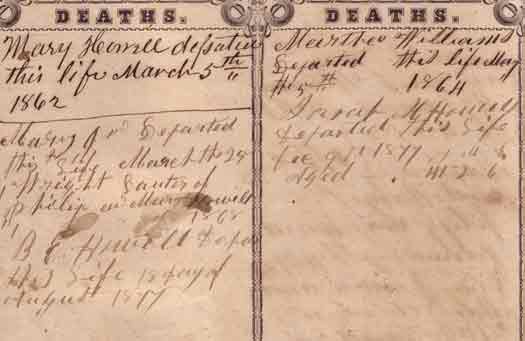 DEATHS.
Mary Howell departed
this life March 5th
1862
Mary J Departed
this Life March the 29
Philip Howell
1868
B E Howell Depar
this Life 18 day of
August 1877
DEATHS.
Martha Williams
Departed this Life May
the 5th 1864
Howell
Departed this Life
Dec 1877
Aged